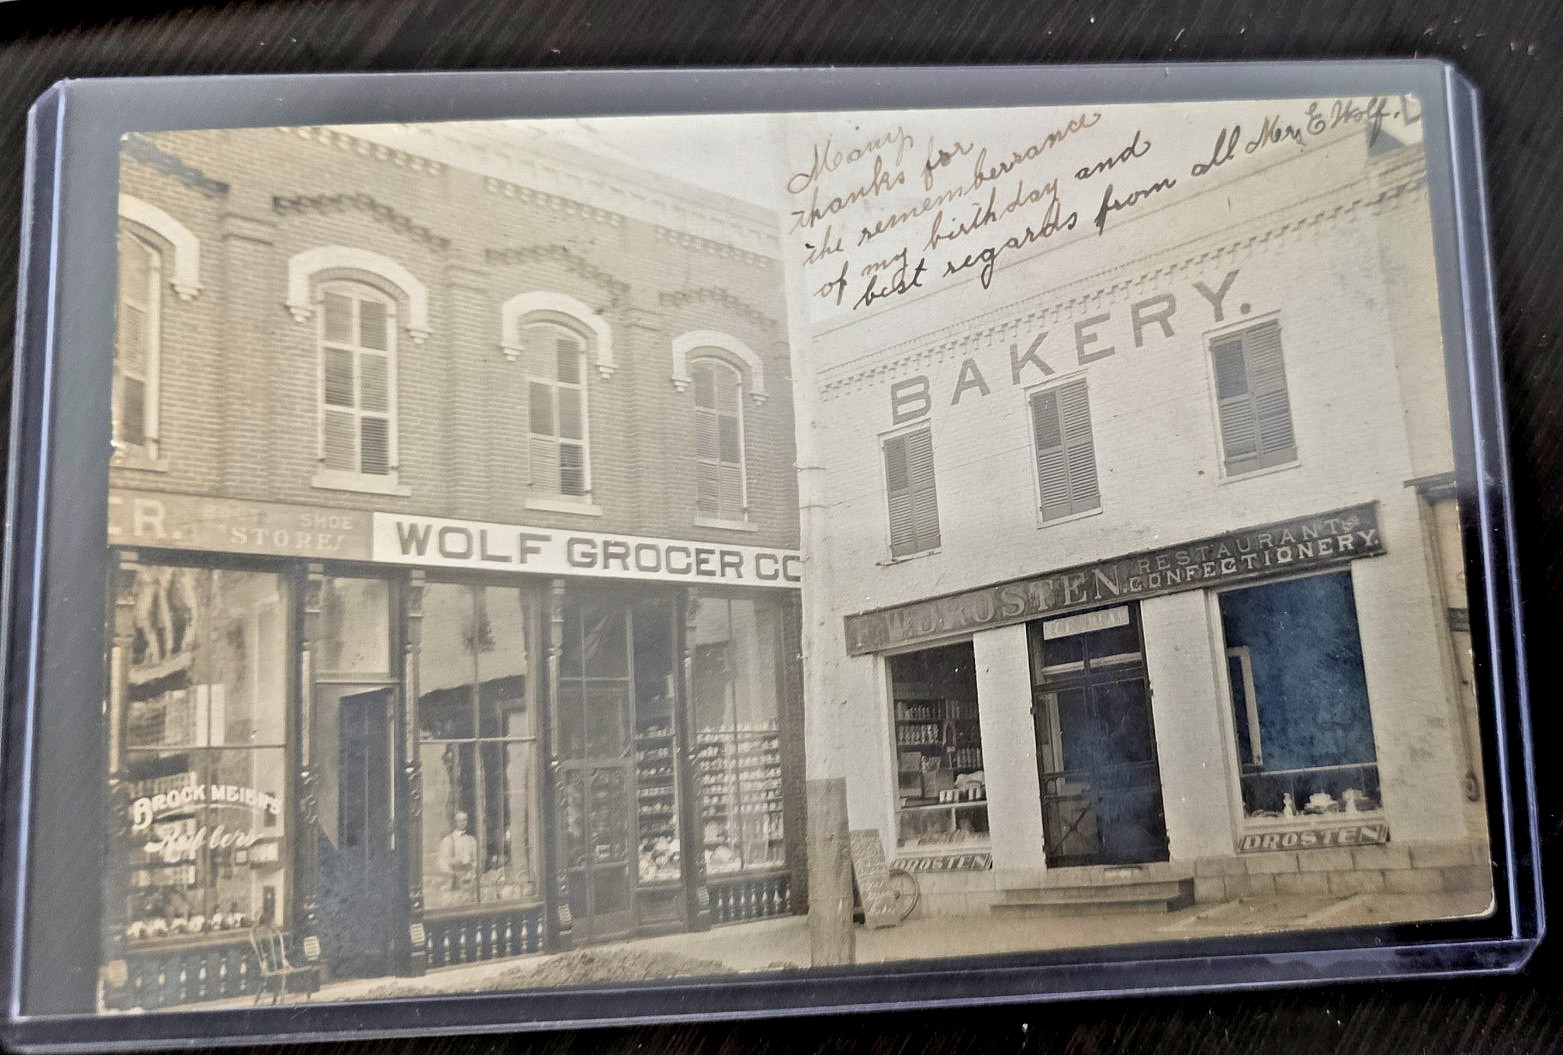 Many
thanks for
the rememberrance
of my birthday and
best regards from all Mr. E Wolf.
BAKERY.
ER.
BOOT SHOE
STORE
WOLF GROCER CO
F. W. DROSTEN.
RESTAURANT
CONFECTIONERY.
ICE CREAM
BROCKMEIER'S
Rubbers
DROSTEN
DROSTEN